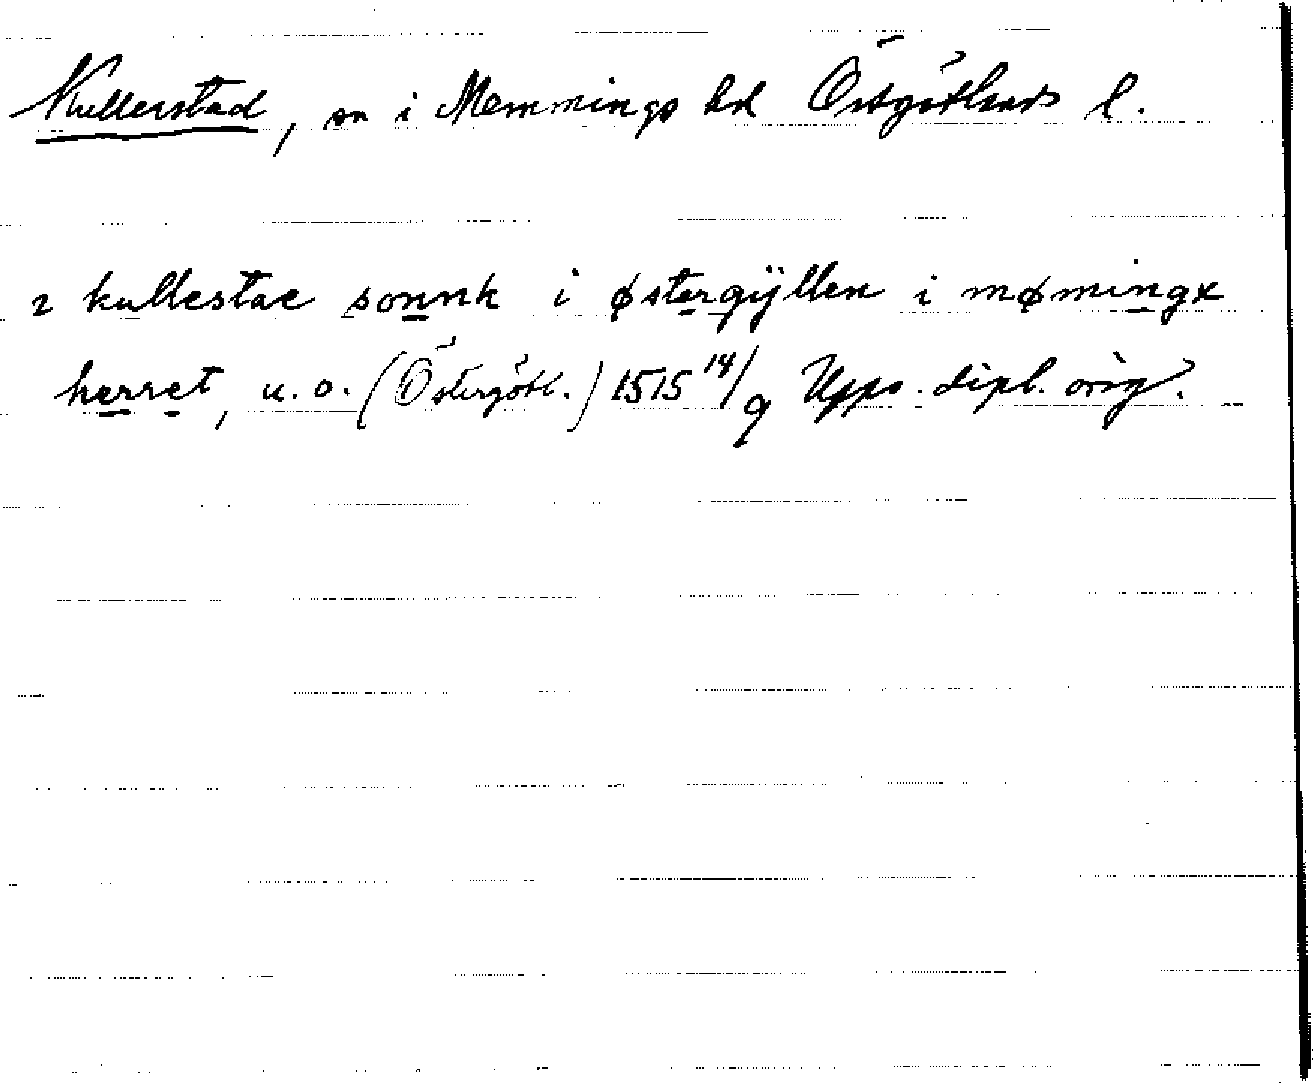 Kullerstad, sn i Memmings hd Östergötlands l.
i kullestae sonnk i østergÿllen i mømingx
herret, u. o. (Östergötl.) 1515 14/9 Upps. dipl. orig.